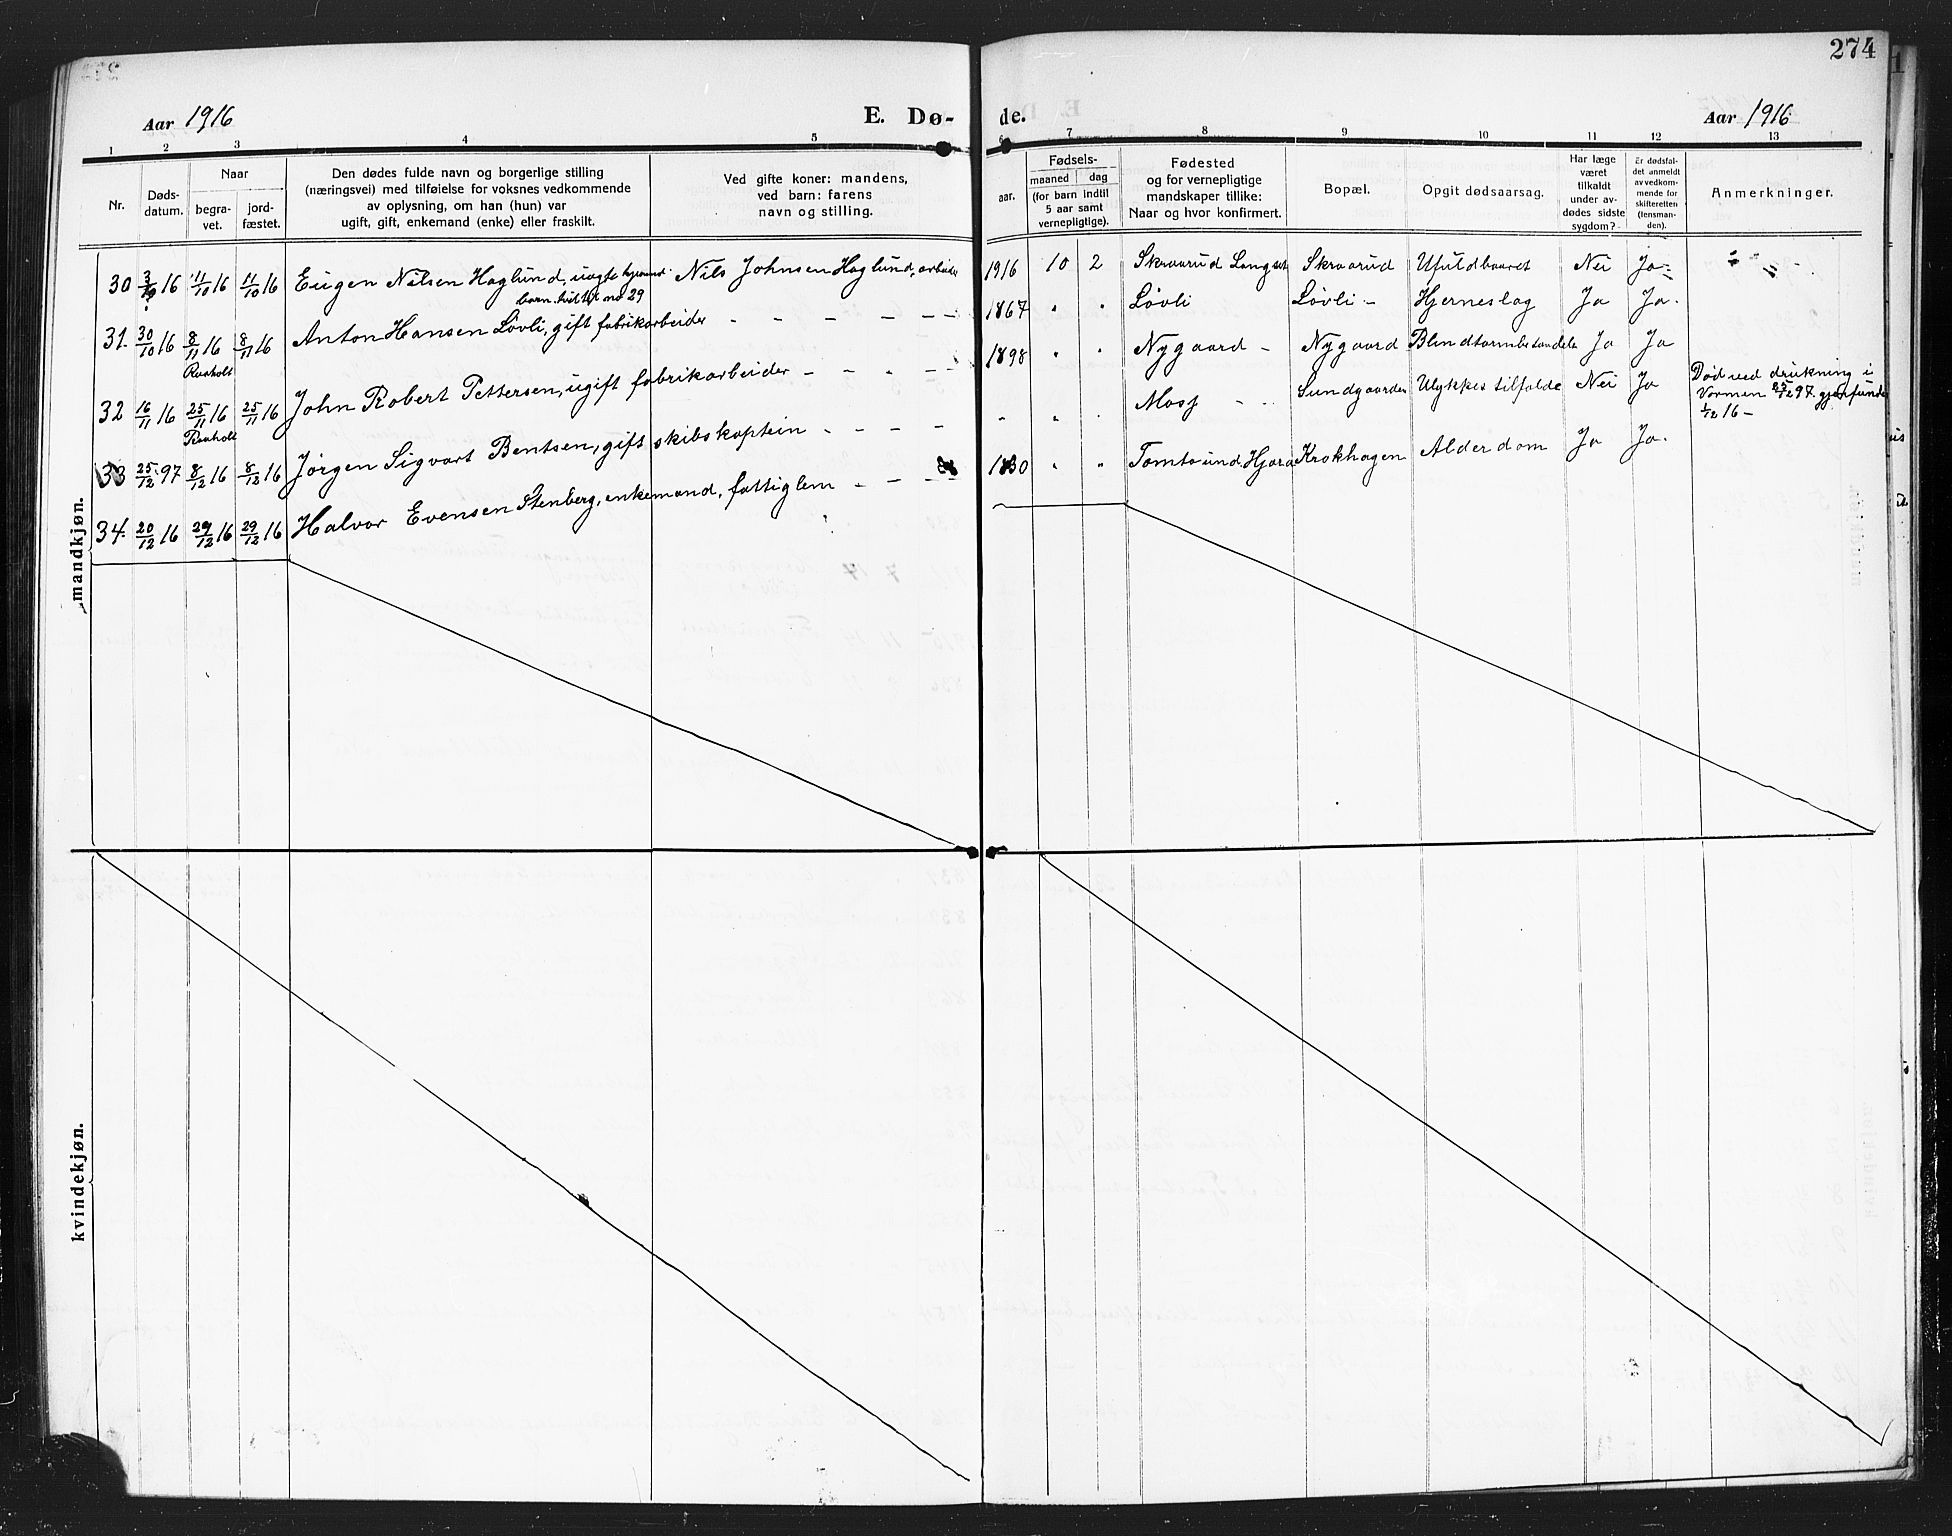 274
Aar 1916
E. Dø-
de.
Aar 1916
1 2 3 4 5 6 7 8 9 10 11 12 13
Nr.
Døds-
datum.
Naar
begra-
vet.
jord-
fæstet.
Den dødes fulde navn og borgerlige stilling
(næringsvei) med tilføielse for voksnes vedkommende
av oplysning, om han (hun) var
ugift, gift, enkemand (enke) eller fraskilt.
Ved gifte koner: mandens,
ved barn: farens
navn og stilling.
aar.
Fødsels-
maaned dag
(for barn indtil
5 aar samt
vernepligtige).
Fødested
og for vernepligtige
mandskaper tillike:
Naar og hvor konfirmert.
Bopæl.
Opgit dødsaarsag.
Har læge
været
tilkaldt
under av-
dødes sidste
sygdom?
Er dødsfal-
det anmeldt
av vedkom-
mende for
skifteretten
(lensman-
den).
Anmerkninger.
mandkjøn.
30 3/10 16 11/10 16 11/10 16 Eugen Nilsen Haglund, uegte Nils Johnsen Haglund, arbeider 1916 10 2 Skraarud Langset Skraarud Ufuldbaaret Nei Ja - " "
barn. tvilling no 29
31. 30/10 16 8/11 16 8/11 16 Anton Hansen Løvli, gift fabrikarbeider - - - - - - 1867 " " Løvli Løvli - Hjerneslag Ja Ja.
Raaholt
32 16/11 16 25/11 16 25/11 16 John Robert Pettersen, ugift fabrikarbeider - - - - - 1898 " " Nygaard - Nygaard Blindtarmbetændelse Ja Ja
Raaholt
33 25/12 97 8/12 16 8/12 16 Jørgen Sigvart Bentsen, gift skibskaptein - - - - - " " " Moss - - Sundgaarden Ulykkestilfælde Nei Ja Død ved drukning i
Vormen 25/12 97. gjenfunden
1/12 16 -
34. 20/12 16 29/12 16 29/12 16 Halvor Evensen Stenberg, enkemand, fattiglem - - - - 1830 " " Tomte und. Hjera Krokhagen Alderdom Ja Ja.
kvindekjøn.